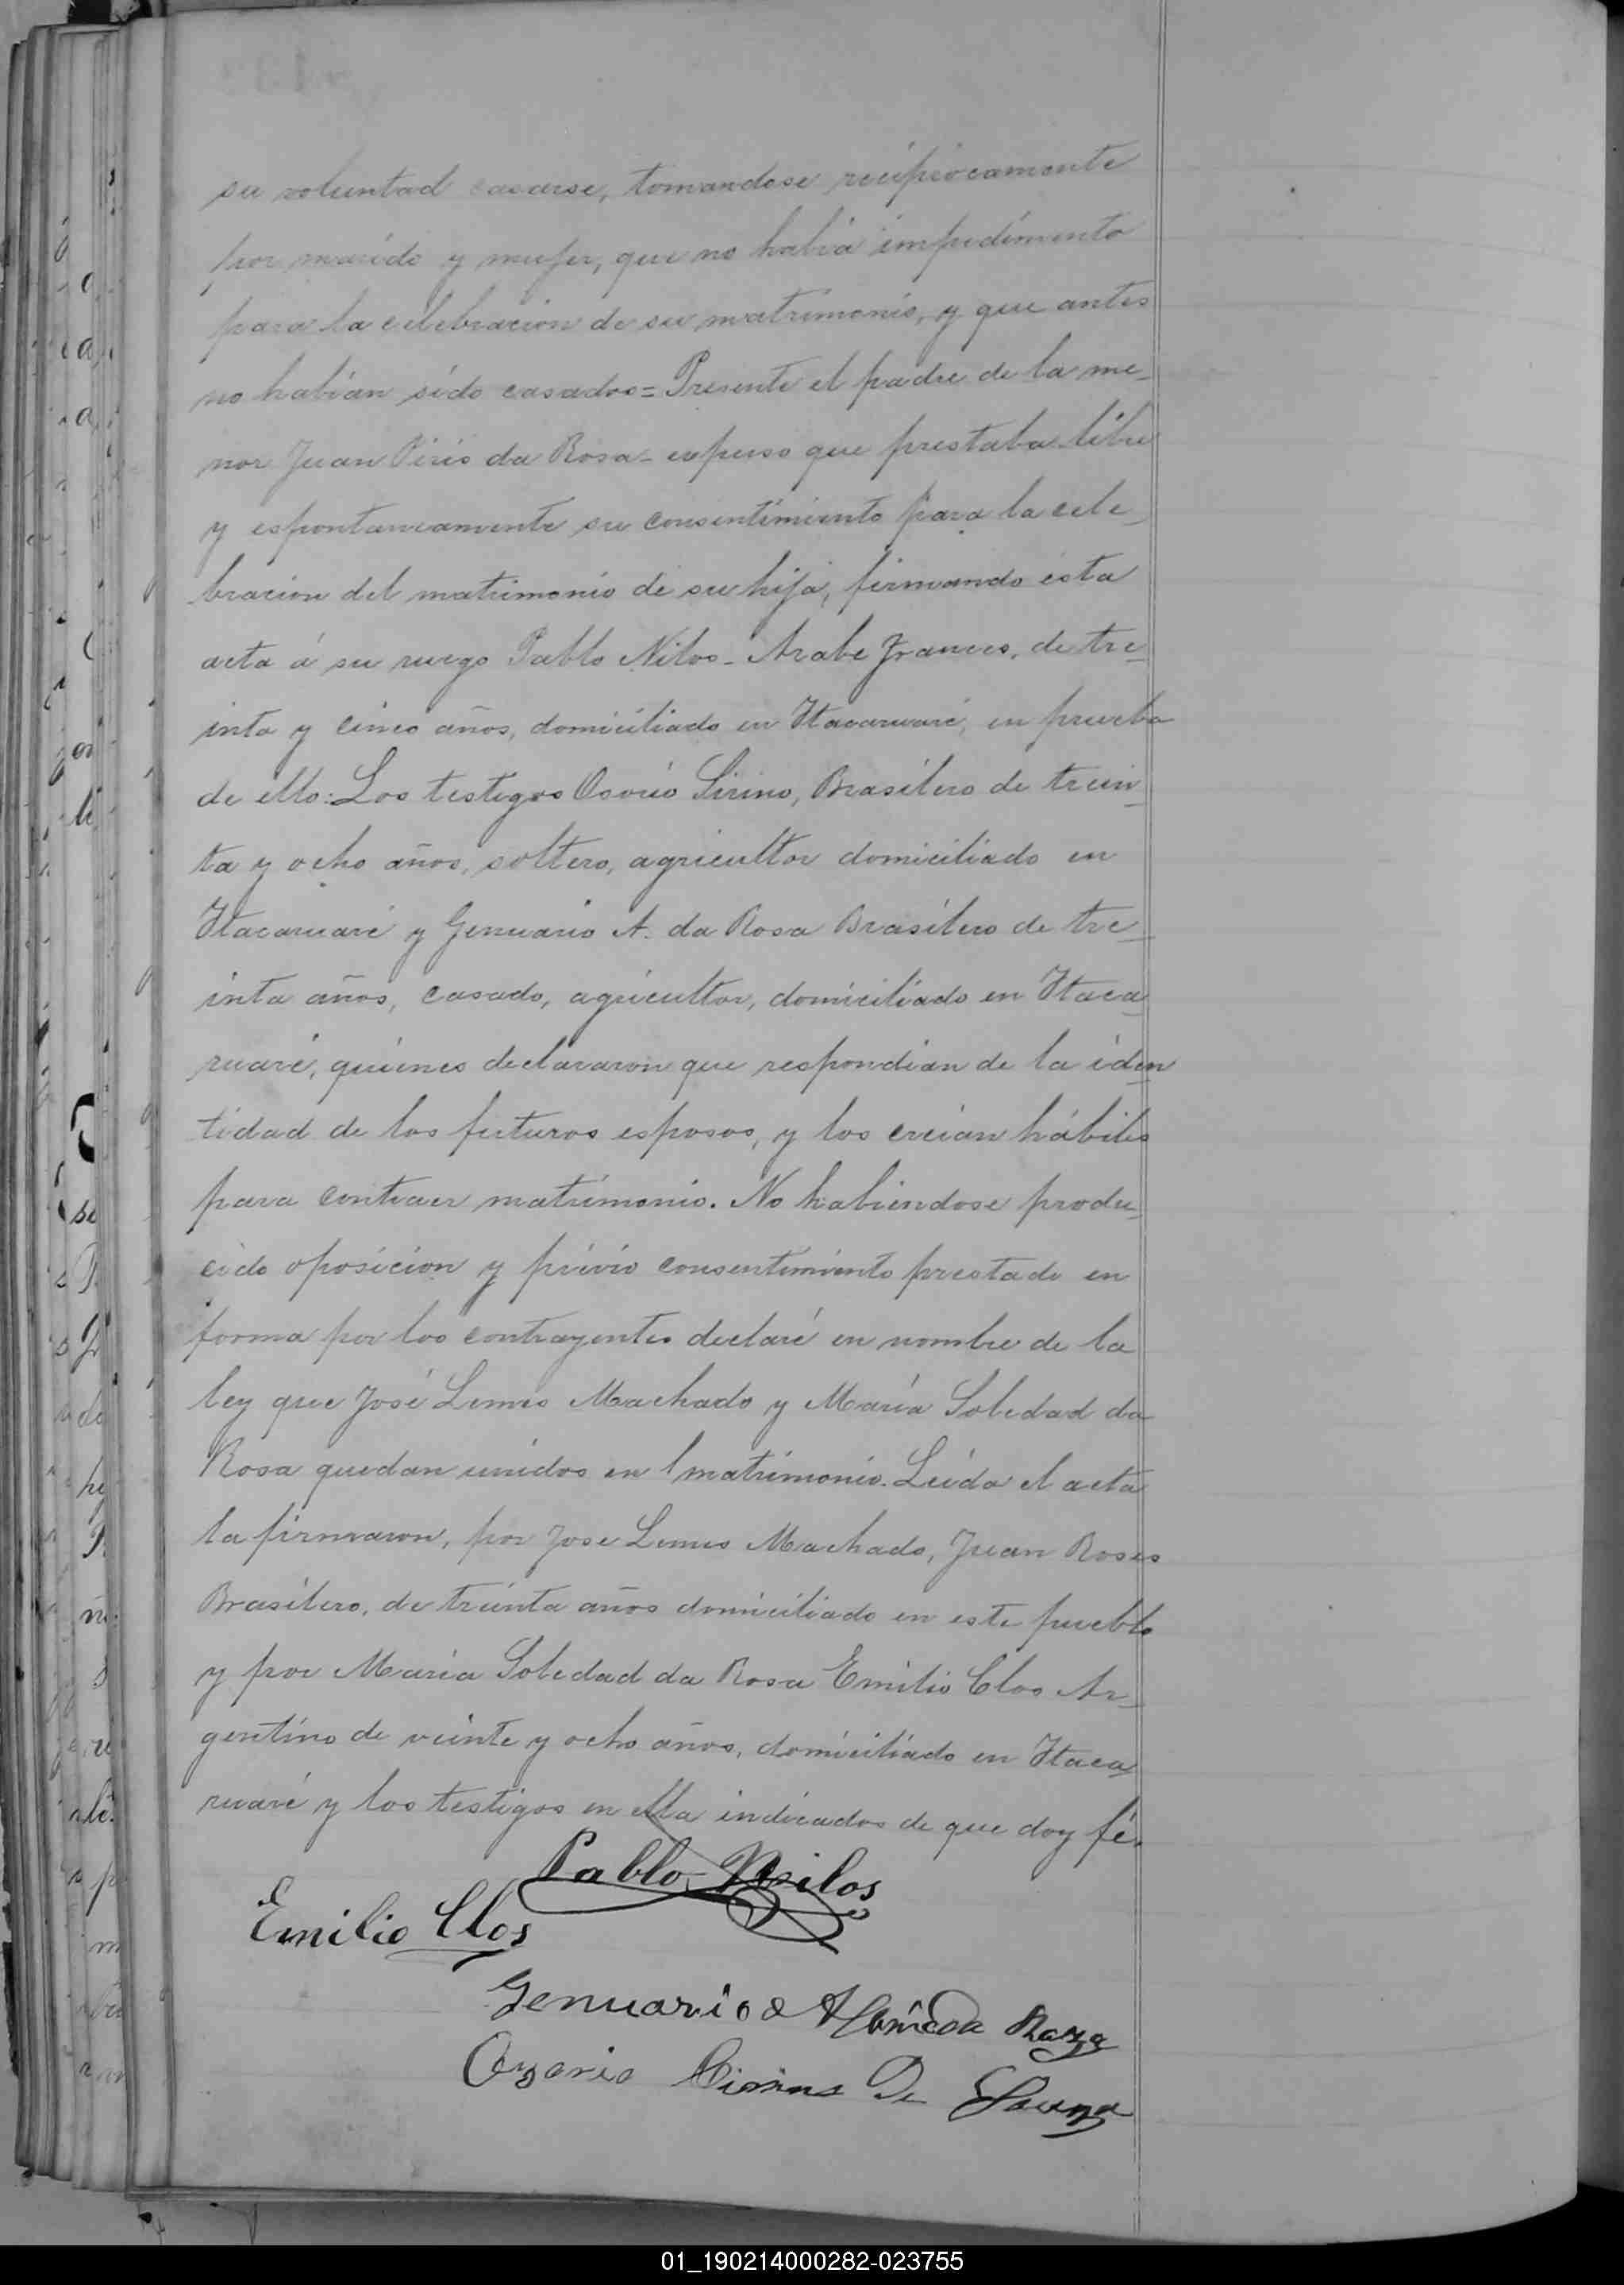 su voluntad casarse, tomandose reciprocamente
por marido y mujer, que no habia impedimento
para la celebracion de su matrimonio, y que antes
no habian sido casados = Presente el padre de la me_
nor Juan Piris da Rosa - expuso que prestaba libre
y espontaneamente su consentimiento para la cele_
bracion del matrimonio de su hija, firmando esta
acta á su ruego Pablo Nilos - Arabe Frances, de tre_
inta y cinco años, domiciliado en Itacaruaré, en prueba
de ello: Los testigos Osorio Sirino, Brasilero de trein_
ta y ocho años, soltero, agricultor domiciliado en
Itacaruaré y Genuario A. da Rosa Brasilero de tre_
inta años, casado, agricultor, domiciliado en Itaca_
ruaré, quienes declararon que respondian de la iden
tidad de los futuros esposos, y los creian hábiles
para contraer matrimonio. No habiendose produ_
cido oposicion y prévio consentimiento prestado en
forma por los contrayentes declaré en nombre de la
ley que José Lemes Machado y María Soledad da
Rosa quedan unidos en matrimonio. Leida el acta
la firmaron, por Jose Lemes Machado, Juan Roses
Brasilero, de treinta años domiciliado en este pueblo
y por María Soledad da Rosa Emilio Clos Ar_
gentino de veinte y ocho años, domiciliado en Itaca_
ruaré y los testigos en ella indicados de que doy fé.
Pablo Nilos
Emilio Clos
Genuario Roza
Ozorio De Souza
01_190214000282-023755